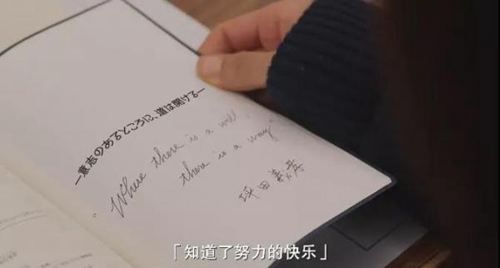 ー意志のあるところに、道は開けるー
"Where there is a will,
there is a way"
坪田
「知道了努力的快乐」